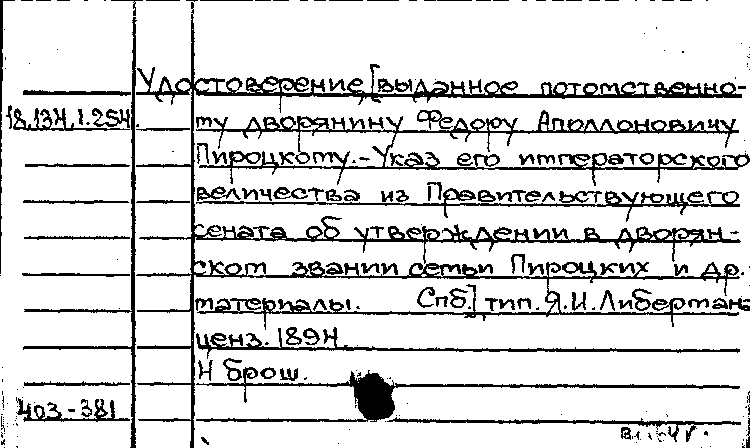 Удостоверение [выданное потомственно-
18.134.1.254 му дворянину Федору Аполлоновичу
Пироцкому.-Указ его императорского
величества из Правительствующего
сената об утверждении в дворян-
ском звании семьи Пироцких и др.
материалы. Спб] тип. Я.И.Либермана
ценз. 1894.
4 брош.
403-381